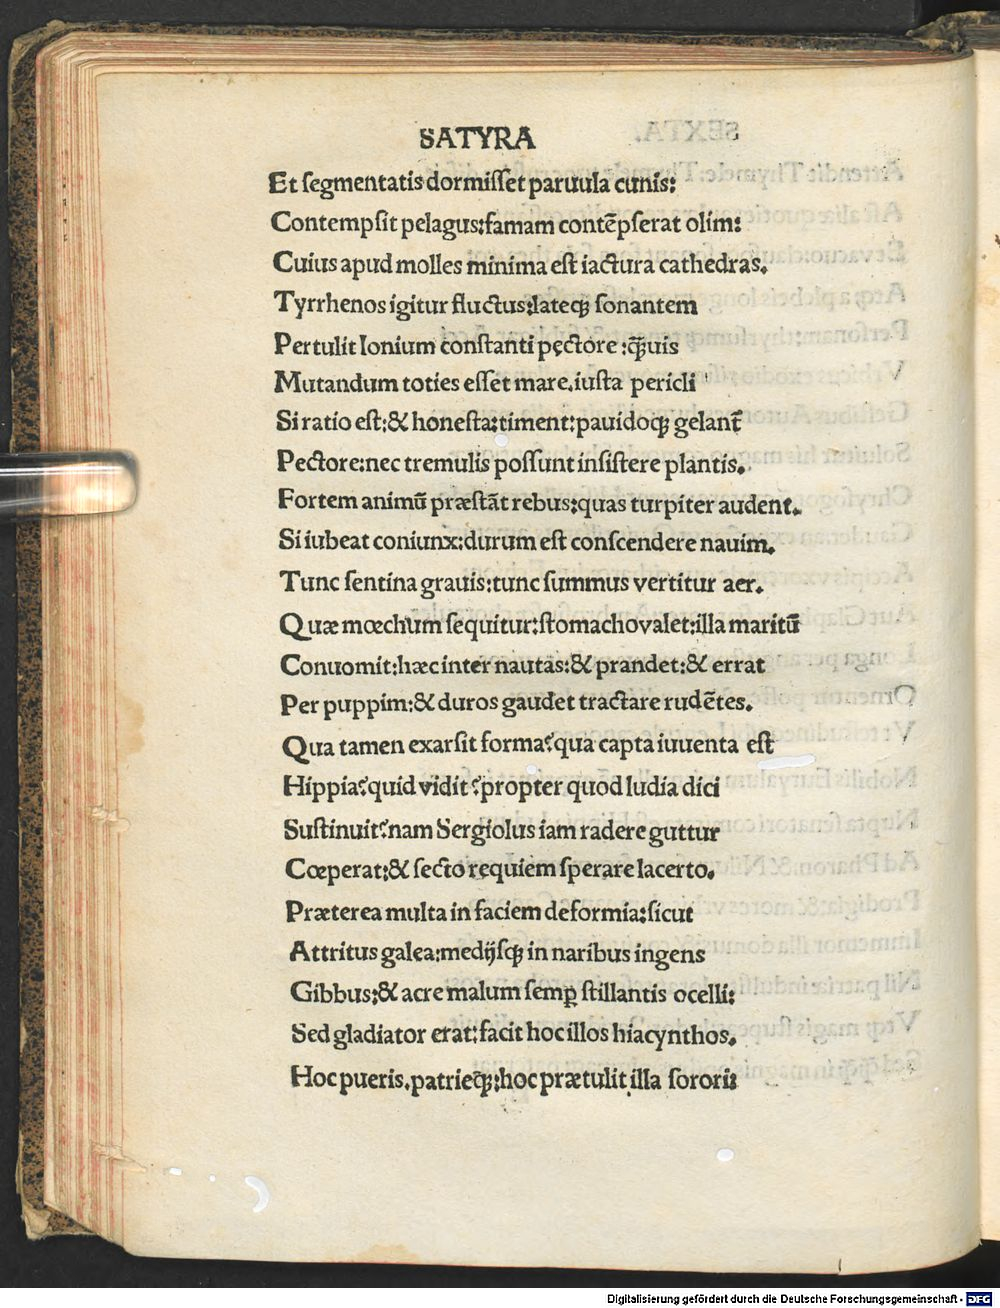 SATYRA
Et ſegmentatis dormiſſet paruula cunis:
Contempſit pelagus:famam contēpſerat olim:
Cuius apud molles minima eſt iactura cathedras.
Tyrrhenos igitur fluctus:lateqꝫ ſonantem
Pertulit Ionium conſtanti pectore:q̄uis
Mutandum toties eſſet mare.iuſta pericli
Si ratio eſt:& honeſta:timent:pauidoqꝫ gelant̄
Pectore:nec tremulis poſſunt inſiſtere plantis.
Fortem animū præſtāt rebus:quas turpiter audent.
Si iubeat coniunx:durum eſt conſcendere nauim.
Tunc ſentina grauis:tunc ſummus vertitur aer.
Quæ mœchum ſequitur:ſtomacho valet:illa maritū
Conuomit:hæc inter nautas:& prandet:& errat
Per puppim:& duros gaudet tractare rudētes.
Qua tamen exarſit forma?qua capta iuuenta eſt
Hippia?quid vidit?propter quod ludia dici
Suſtinuit?nam Sergiolus iam radere guttur
Cœperat:& ſecto requiem ſperare lacerto.
Præterea multa in faciem deformia:ſicut
Attritus galea:medijſqꝫ in naribus ingens
Gibbus:& acre malum ſemꝑ ſtillantis ocelli:
Sed gladiator erat:facit hoc illos hiacynthos.
Hoc pueris.patrieqꝫ:hoc prætulit illa ſorori:
Digitalisierung gefördert durch die Deutsche Forschungsgemeinschaft - DFG